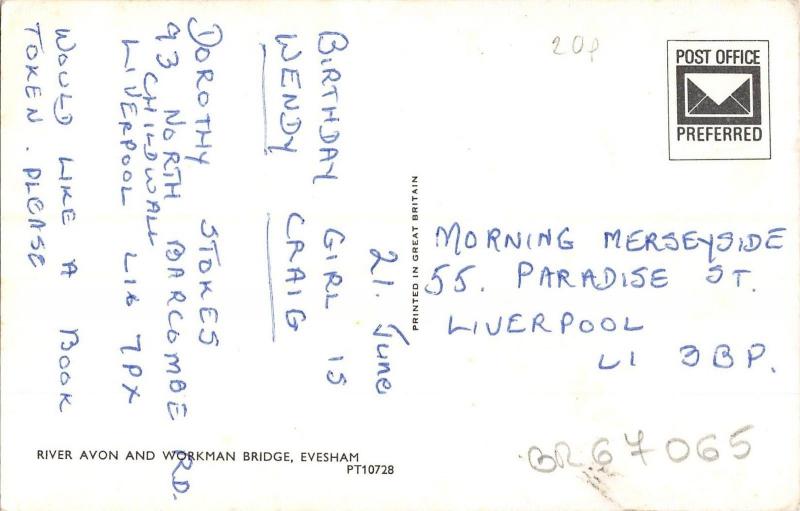 20p
POST OFFICE
PREFERRED
PRINTED IN GREAT BRITAIN
21. June
BIRTHDAY GIRL IS
WENDY CRAIG
DOROTHY STOKES
93 NORTH BARCOMBE RD.
CHILDWALL
LIVERPOOL L16 7PX
WOULD LIKE A BOOK
TOKEN. PLEASE
MORNING MERSEYSIDE
55. PARADISE ST.
LIVERPOOL
L1 3BP.
RIVER AVON AND WORKMAN BRIDGE, EVESHAM
PT10728
BR67065